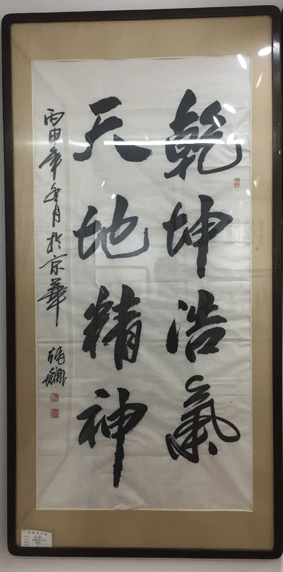 乾坤浩氣
天地精神
丙申年冬月於京華